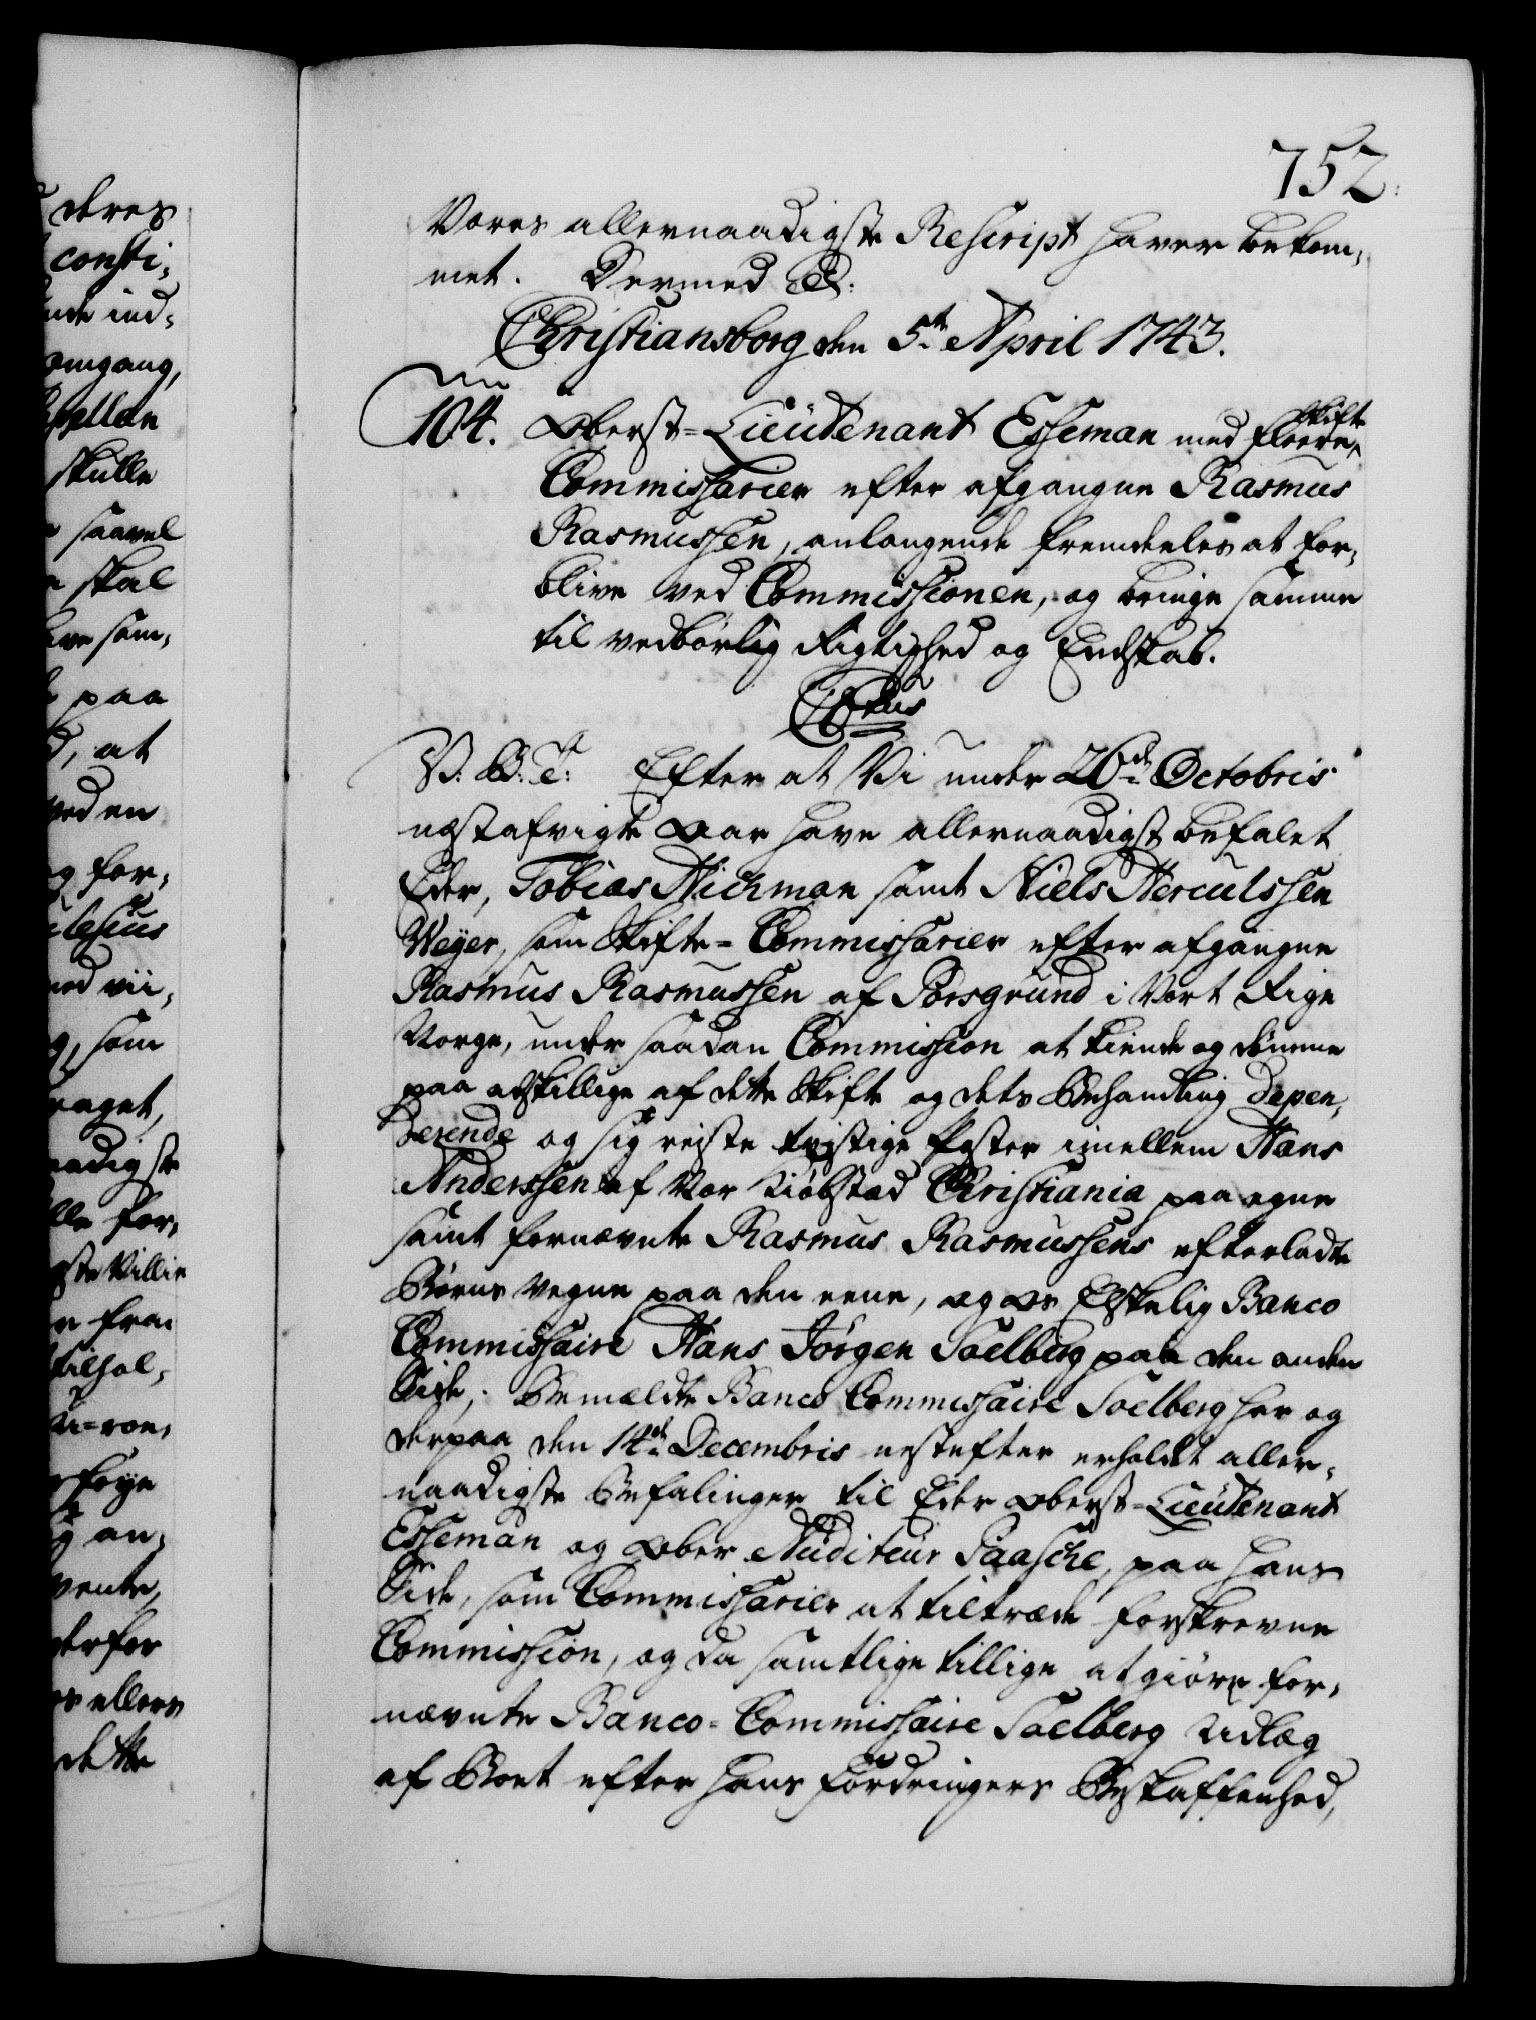 deres
consti-
ind-
omgang,
skulle
saavel
skal
som-
paa
at
ved en
og for-
vii-
som
raget,
aadigste
for-
Villie
fra
tilhol-
an-
vente,
derfor
ellers
dette
752.
Vores allernaadigste Rescript haver bekom-
met. Dermed &:
Christiansborg den 5te April 1743.
104. Oberst-Lieutenant Esseman med fleere Skifte
Commissarier efter afgangne Rasmus
Rasmussen, anlangende fremdeeles at for-
blive ved Commissionen, og bringe samme
til vedbørlig Rigtighed og Endskab.
C 6tus
V: G: T: Efter at Vi under 26de Octobris
næstafvigte Aar have allernaadigst befalet
Eder, Tobias Wichman samt Niels Herculssen
Weyer, som Skifte-Commissarier efter afgangne
Rasmus Rasmussen af Porsgrund i Vort Rige
Norge, under saadan Commission at kiende og dømme
paa adskillige af dette Skifte og dets Behandling depen-
derende og sig reiste tvistige Poster imellem Hans
Anderssen af Vor Kiøbstad Christiania paa egne
samt fornævnte Rasmus Rasmussens efterladte
Børns Vegne paa den eene, og Os Elskelig Banco
Commissaire Hans Jørgen Soelberg paa den anden
Side; Bemældte Banco Commissaire Soelberg har og
derpaa den 14de Decembris nestefter erholdt aller-
naadigste Befalinger til Eder Oberst-Lieutenant
Esseman og Ober Auditeur Paasche, paa hans
Side, som Commissarier at tiltræde forskrevne
Commission, og da samtlige tillige at giøre for-
nævnte Banco-Commissaire Soelberg Udlæg
af Boet efter hans Fordringers Beskaffenhed,